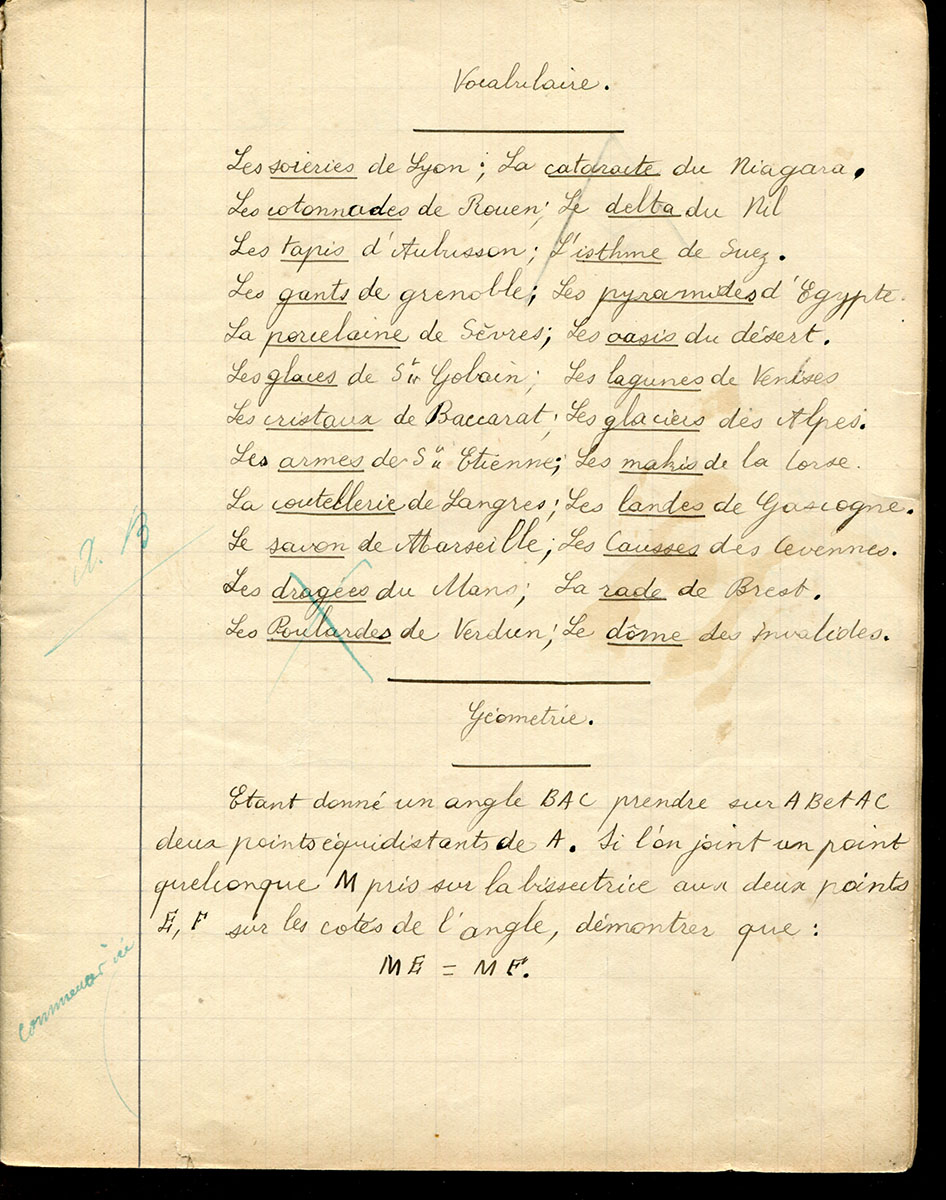 Vocabulaire.
Les soieries de Lyon ; La cataracte du Niagara.
Les cotonnades de Rouen ; Le delta du Nil
Les tapis d'Aubusson ; L'isthme de Suez.
Les gants de grenoble ; Les pyramides d'Egypte.
La porcelaine de Sèvres ; Les oasis du désert.
Les glaces de St Gobain ; Les lagunes de Venises
Les cristaux de Baccarat ; Les glaciers des Alpes.
Les armes de St Etienne ; Les makis de la Corse.
La coutellerie de Langres ; Les landes de Gascogne.
Le savon de Marseille ; Les Causses des Cevennes.
Les dragées du Mans ; La rade de Brest.
Les Poulardes de Verdun ; Le dôme des invalides.
B
Géometrie.
Etant donné un angle BAC prendre sur AB et AC
deux points équidistants de A. Si l'on joint un point
quelconque M pris sur la bissectrice aux deux points
E, F sur les cotés de l'angle, démontrer que :
ME = MF.
commencer ici